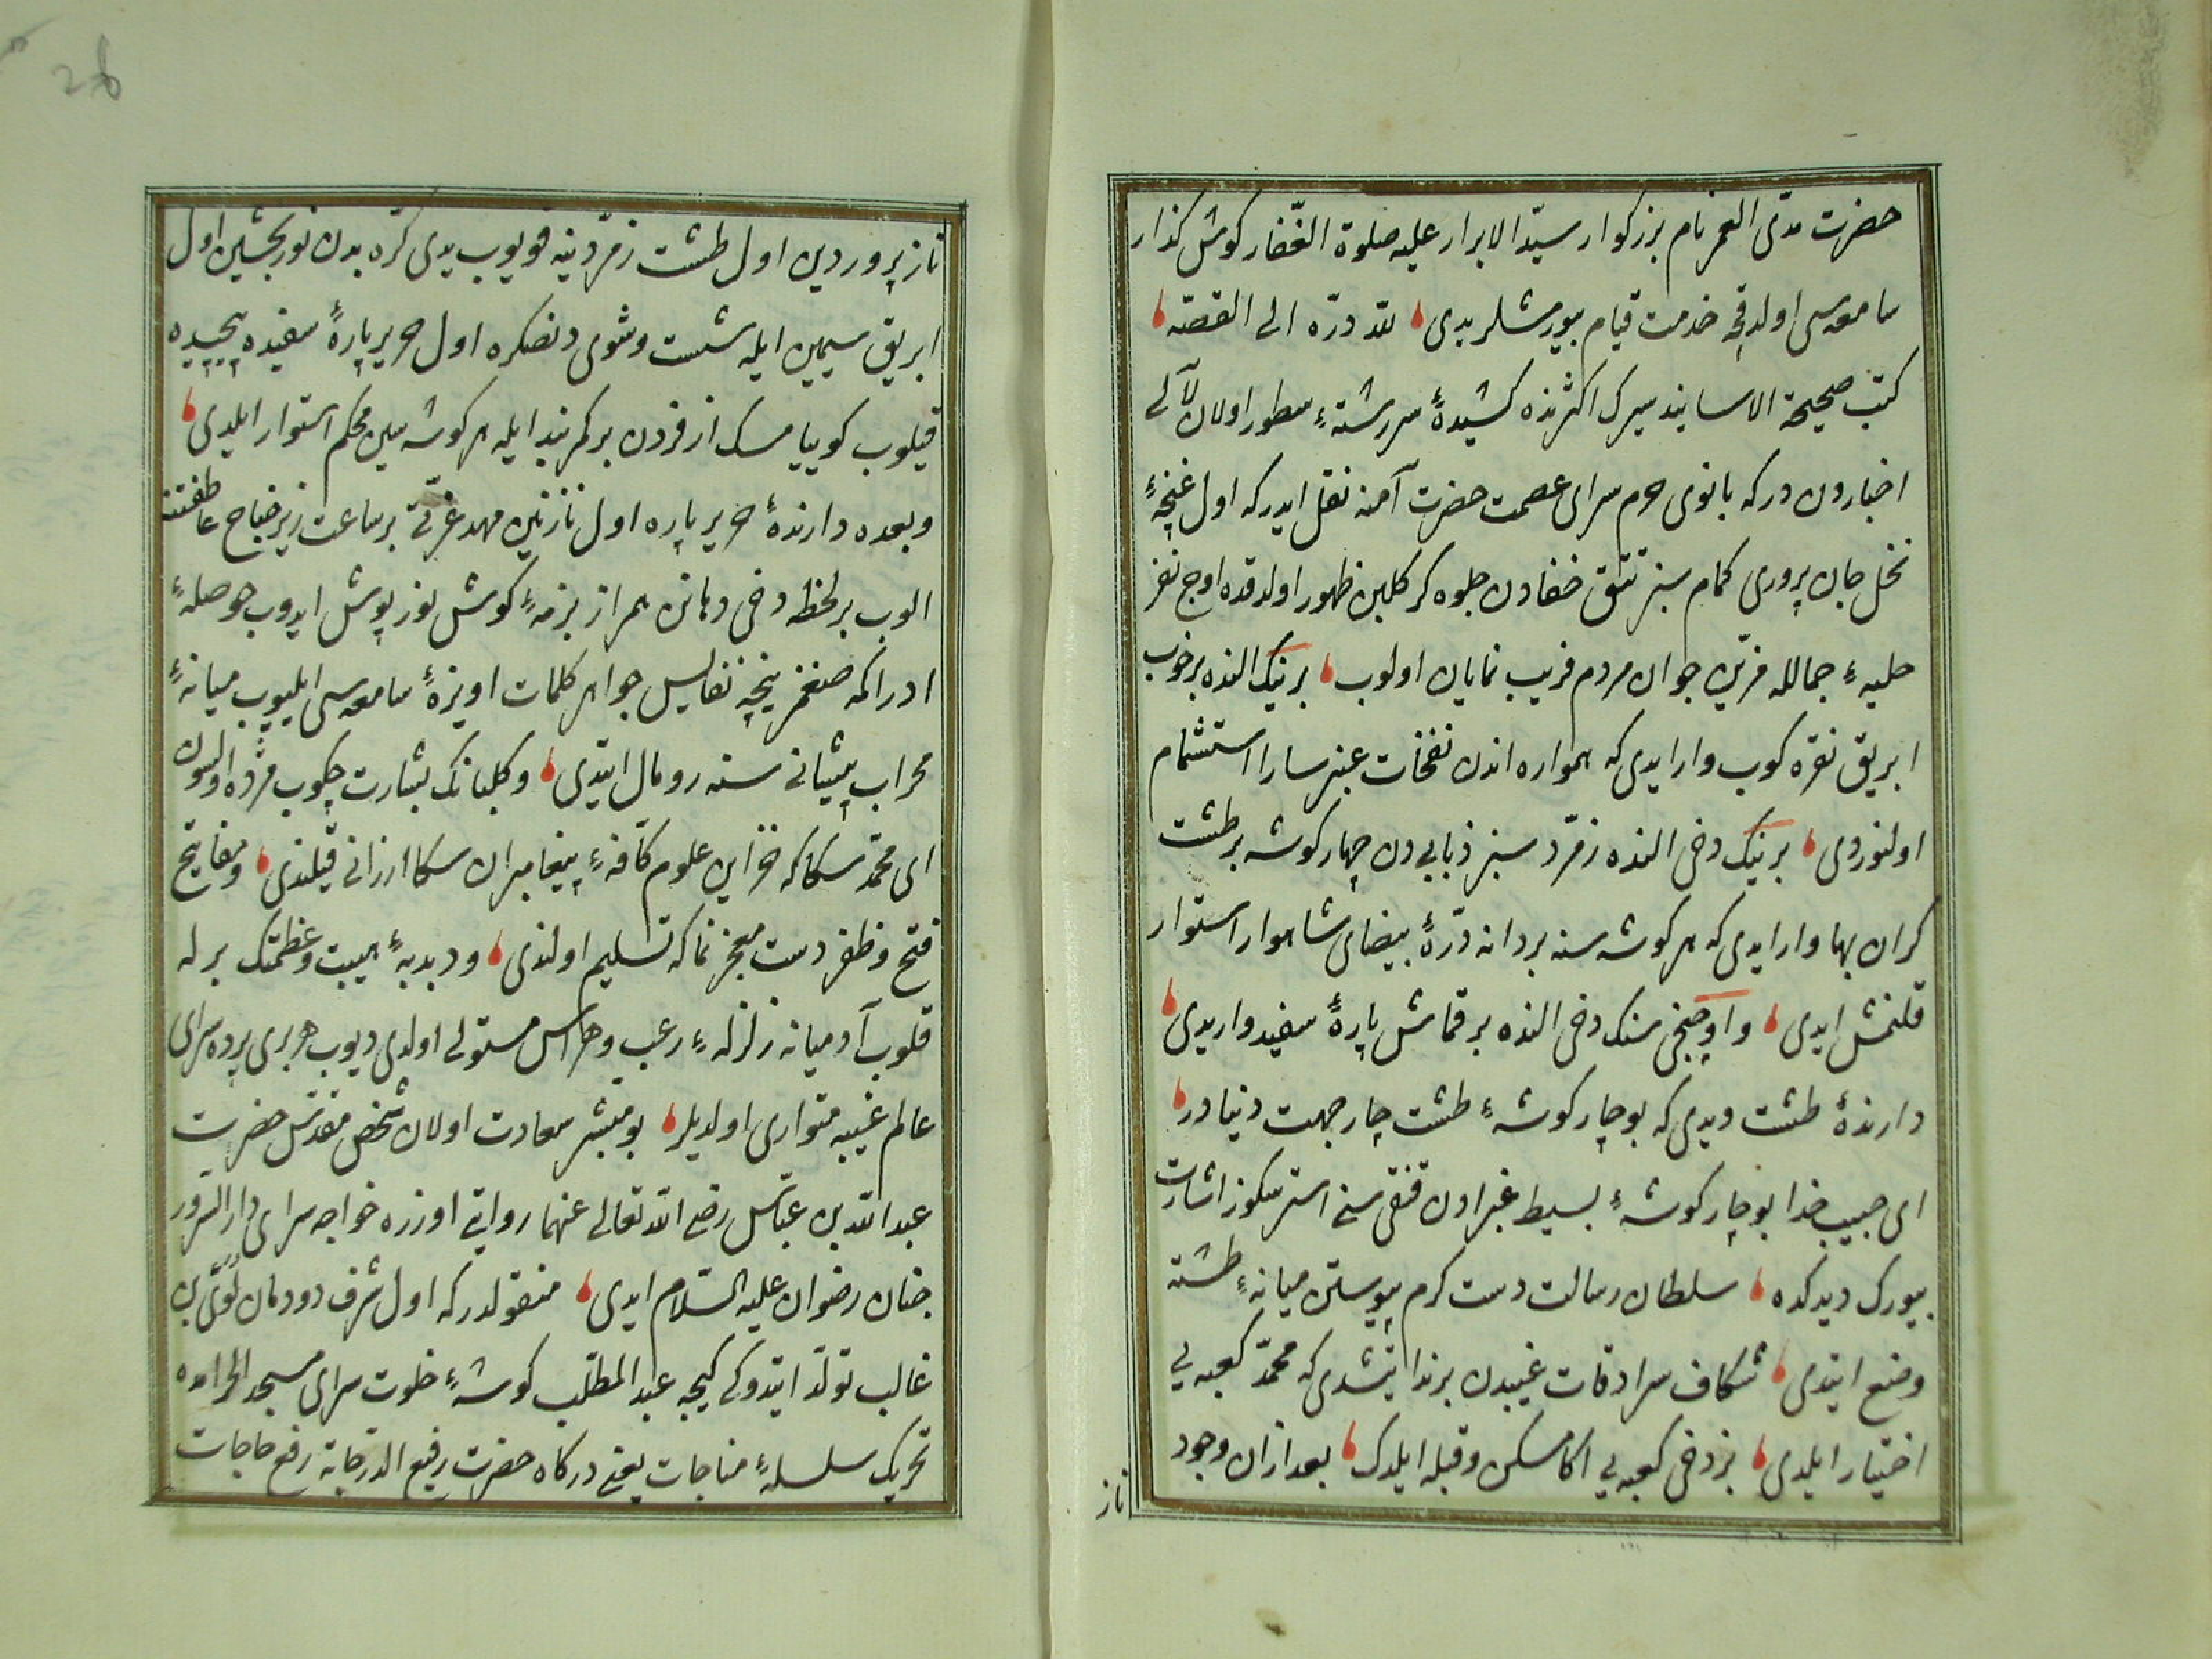 حضرت مدّی العمر نام بزرکوار سیّد الابرار علیه صلوة الغفّار کوش کذار
سامعه سی اولدقچه خدمت قیام بیورمشلر یدی لله درّه الی القصّه
کتب صحیحة الاسانید سیرک اکثرنده کشیدهٔ سررشتهٔ سطور اولان لآلی
اخباردن در که بانوی حرم سرای عصمت حضرت آمنه نقل ایدر که اول غنچهٔ
نخل جان پروری کمام سبز تتق خفادن جلوه کر کلبن ظهور اولدقده اوچ نفر
حلیهٔ جمالله مزیّن جوان مردم فریب نمایان اولوب برینک النده بر خوب
ابریق نقره کوب وار ایدی که همواره اندن نفخات عنبر سارا استشمام
اولنوردی برینک دخی النده زمرّد سبز ذبابی دن چهار کوشه بر طشت
کران بها وار ایدی که هر کوشه سنه بر دانه درّهٔ بیضای شاهوار استوار
قلنمش ایدی و اوچنجی سنک دخی النده بر قماش پارهٔ سفید وار یدی
دارندهٔ طشت دیدی که بو چار کوشهٔ طشت چار جهت دنیا در
ای حبیب خدا بو چار کوشهٔ بسیط غبرادن قنقی سنی استرسکوز اشارت
بیورک دیدکده سلطان رسالت دست کرم پیوستن میانهٔ طشته
وضع ایتدی شکاف سرادقات غیبدن بر ندا ایتشدی که محمّد کعبه یی
اختیار ایلدی بز دخی کعبه یی اکا مسکن و قبله ایلدک بعد ازان وجود
ناز
ناز پروردین اول طشت زمرّدینه قویوب یدی کرّه بدن نور بخشین اول
ابریق سیمین ایله شست و شوی دنصکره اول حریر پارهٔ سفیده پیچیده
قیلوب کویبا مسک ازفردن بر کمربند ایله هر کوشه سین محکم استوار ایلدی
و بعده دارندهٔ حریر پاره اول نازنین مهد عزّتی بر ساعت زیر جناح عاطفتنه
الوب بر لحظه دخی دهانن همراز بزمهٔ کوش نوز پوش ایدوب حوصلهٔ
ادراکمه صغمز نیچه نفایس جواهر کلمات اویزهٔ سامعه سی ایلیوب میانهٔ
محراب پیشانی سنه رومال ایتدی و کلبانک بشارت چکوب مژده اولسون
ای محمّد سکا که خزاین علوم کافهٔ پیغامبران سکا ارزانی قیلندی و مفاتیح
فتح و ظفر دست معجز نماکه تسلیم اولندی و دبدبهٔ هیبت و عظمتک برله
قلوب آدمیانه زلزلهٔ رعب و هراس مستولی اولدی دیوب هر بری پرده سرای
عالم غیبه متواری اولدیلر بو مبشّر سعادت اولان شخص مقدّس حضرت
عبد الله بن عبّاس رضی الله تعالی عنهما روایتی اوزره خواجه سرای دار السّرور
جنان رضوان علیه السّلام ایدی منقولدر که اول شرف دودمان لؤیّ بن
غالب تولّد ایتدوکی کیجه عبد المطّلب کوشهٔ خلوت سرای مسجد الحرامده
تحریک سلسلهٔ مناجات یعنی درکاه حضرت رفیع الدّرجاته رفع حاجات
26